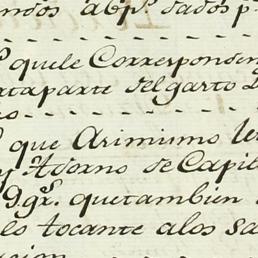 abp.s dados p
quele Correspondem
parte del garto
que Arimismo
y Adorno de Capil
9gr. quetambien
lo tocante alos sa